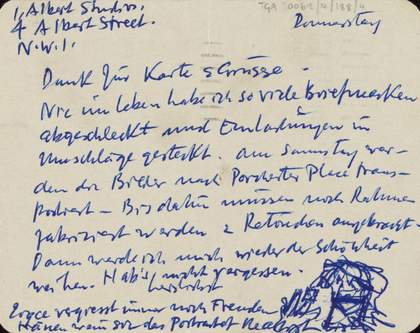 TGA 0062/4/188/4
1, Albert Studios.
4 Albert Street.
N.W.1.
Donnerstag
Dank für Karte & Grüsse.
Nie im Leben habe ich so viele Briefmarken
abgeschleckt und Einladungen in
Umschläge gesteckt. Am Samstag wer-
den die Bilder nach Porchester Place trans-
portiert – Bis dahin müssen noch Rahmen
fabriziert werden & Retouchen angebracht –
Dann werde ich mich wieder der Schönheit
weihen. Hab's nicht vergessen.
herzlichst
vergiesst immer noch Freuden
wenn sie das Portrait